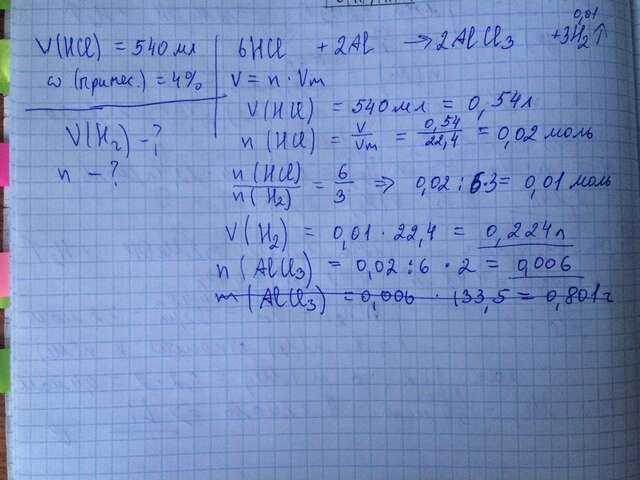 V(HCl) = 540 мл
ω (примес.) = 4%
V(H₂) - ?
n - ?
0,01
6HCl + 2Al → 2AlCl₃ + 3H₂↑
V = n · Vm
V(HCl) = 540 мл = 0,54л
n (HCl) = V/Vm = 0,54/22,4 = 0,02 моль
n(HCl)/n(H₂) = 6/3 ⇒ 0,02 : 6·3 = 0,01 моль
V(H₂) = 0,01 · 22,4 = 0,224л
n(AlCl₃) = 0,02 : 6 · 2 = 0,006
m(AlCl₃) = 0,006 · 133,5 = 0,801г